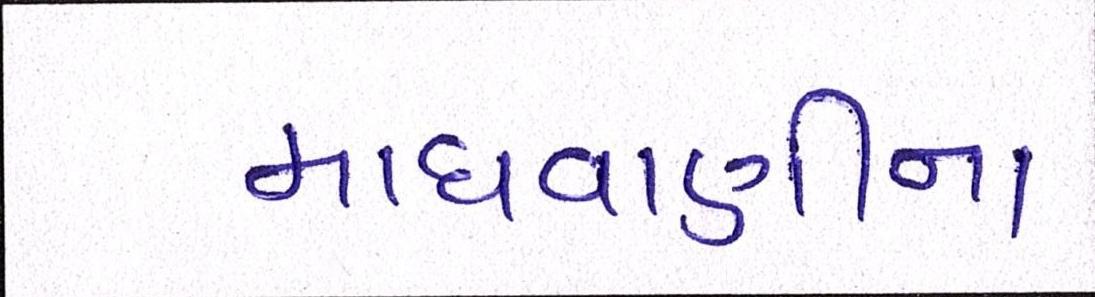 માધવાણીના